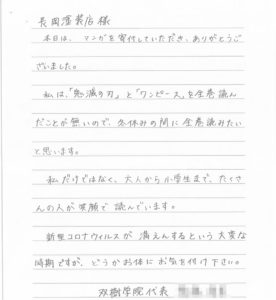 長岡塗装店様
本日は、マンガを寄付していただき、ありがとうご
ざいました。
私は、「鬼滅の刃」と「ワンピース」を全巻読ん
だことが無いので、冬休みの間に全巻読みたい
と思います。
私だけではなく、大人から小学生まで、たくさ
んの人が笑顔で読んでいます。
新型コロナウィルスが満えんするという大変な
時期ですが、どうかお体にお気を付け下さい。
双樹学院代表